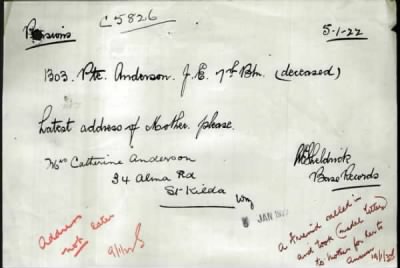 C5826
Pensions
5-1-22
1303. Pte. Anderson. J. E. 7th Btn. (deceased)
Latest address of Mother. please.
Mrs Catherine Anderson
34 Alma Rd
St-Kilda
Base Records
JAN
Address
not later
9/1/22
A friend called in
and took (model letter)
to Mother for her to
answer